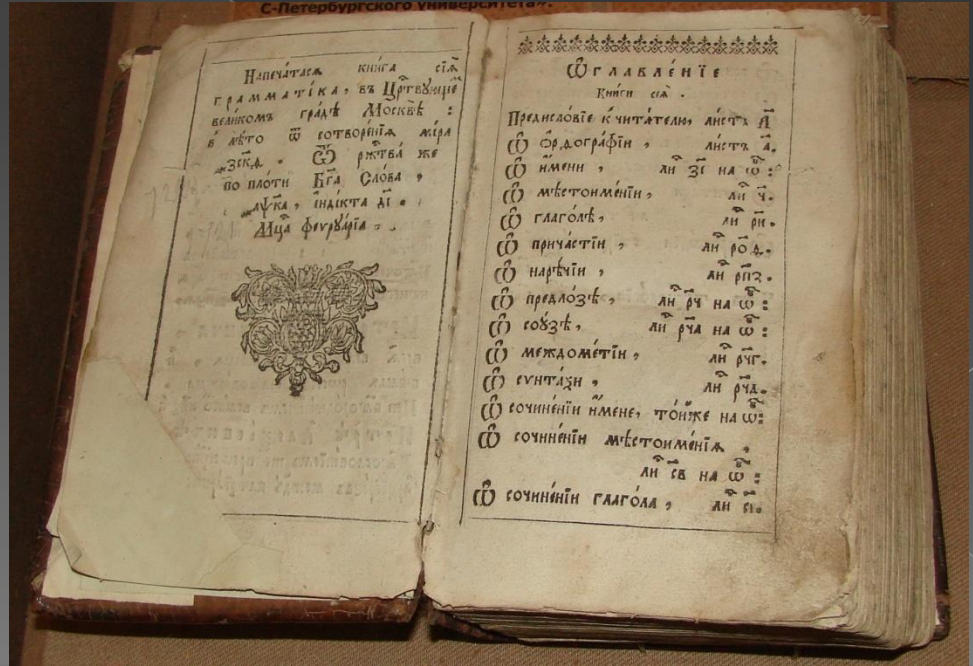 С-Петербургского университета».
Напеча́тася кни́га сїѧ̀
грамма́тїка, въ Црⷭ҇твующеⷨ
вели́комъ гра́дѣ Москвѣ̀ :
в̾ лѣ́то ѿ сотворе́нїѧ мі́ра
҂зск҃ѳ . Ѿ ржⷭ҇тва́ же
по пло́ти Бг҃а Сло́ва ,
҂аѱк҃а , і҆ндї́кта д҃і .
Мцⷭ҇а феѵруа́рїа .
Ѡ҆главле́нїе
Кни́ги сеѧ̀ .
Предисло́вїе к̾ чита́телю, ли́стъ А҃
Ѽ ѻ҆рѳогра́фїи , ли́стъ а҃.
Ѽ и҆́мени , лиⷭ҇ з҃і на ѡ҆бⷪ҇ :
Ѽ мѣстоиме́нїи , лиⷭ҇ ч҃.
Ѽ глаго́лѣ , лиⷭ҇ р҃и.
Ѽ прича́стїи , лиⷭ҇ ро҃д.
Ѽ нарѣ́чїи , лиⷭ҇ рп҃з.
Ѽ предло́зѣ , лиⷭ҇ р҃ч на ѡ҆бⷪ҇ :
Ѽ сою́зѣ , лиⷭ҇ рч҃а на ѡ҆бⷪ҇ :
Ѽ междоме́тїи , лиⷭ҇ рч҃г.
Ѽ сѵнта́ѯи , лиⷭ҇ рч҃д.
Ѽ сочине́нїи и҆́мене, то́йже на ѡ҆бⷪ҇ :
Ѽ сочине́нїи мѣстоиме́нїѧ ,
лиⷭ҇ с҃в на ѡ҆бⷪ҇ :
Ѽ сочине́нїи глаго́ла , лиⷭ҇ с҃і.